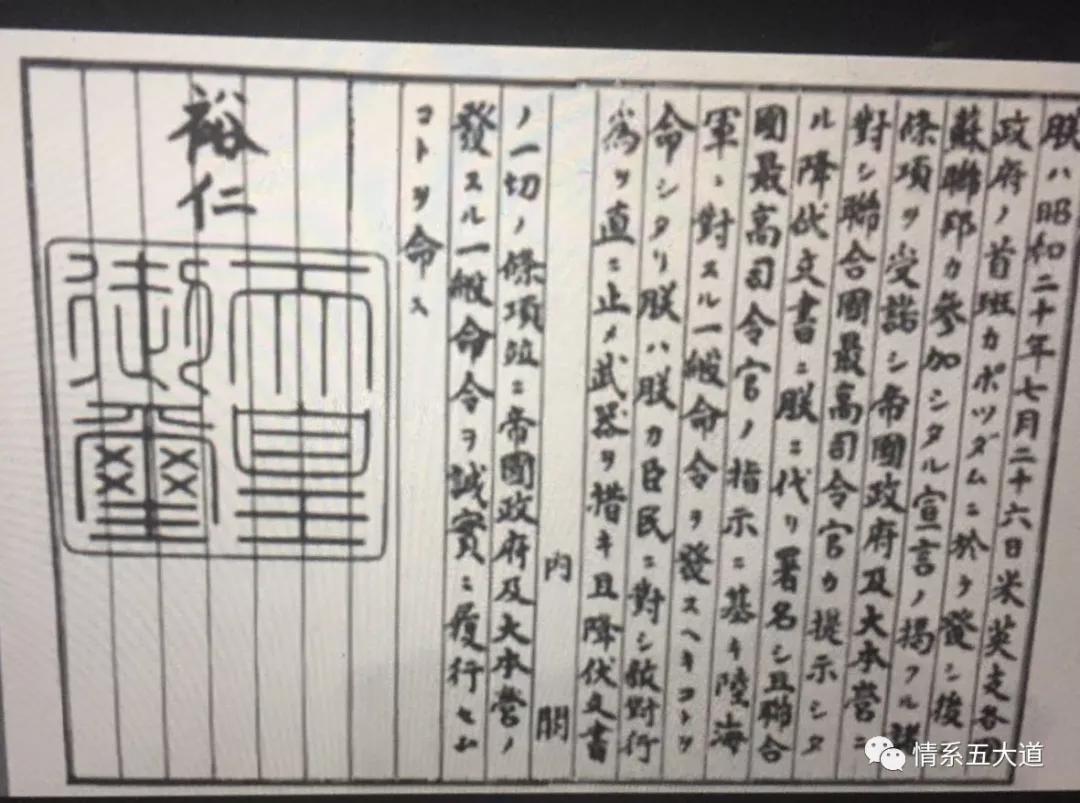 朕ハ昭和二十年七月二十六日米英支各国
政府ノ首班カポツダムニ於テ發シ後
蘇聯邦カ參加シタル宣言ノ掲クル諸
條項ヲ受諾シ帝國政府及大本營ニ
對シ聯合國最高司令官カ提示シタ
ル降伏文書ニ朕ニ代リ署名シ且聯合
國最高司令官ノ指示ニ基キ陸海
軍ニ對スル一般命令ヲ發スヘキコトヲ
命シタリ朕ハ朕カ臣民ニ對シ敵對行
爲ヲ直ニ止メ武器ヲ措キ且降伏文書
内閣
ノ一切ノ條項竝ニ帝國政府及大本營ノ
發スル一般命令ヲ誠實ニ履行セム
コトヲ命ス
裕仁
天皇
御璽
情系五大道